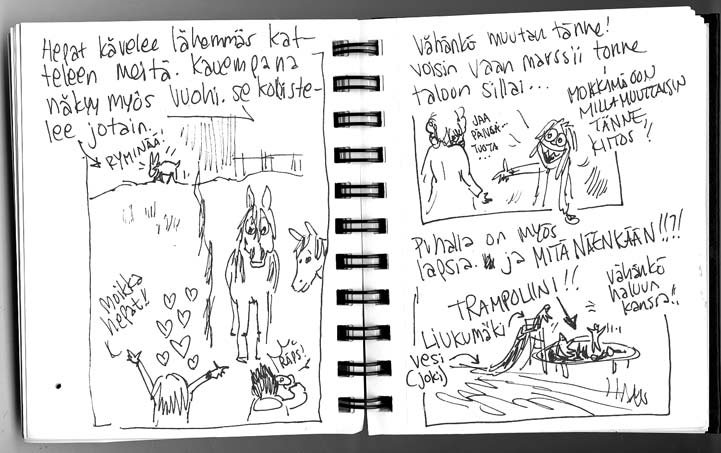 Hepat kävelee lähemmäs kat-
teleen meitä. Kauempana
näkyy myös vuohi. se koliste-
lee jotain.
RYMINÄÄ!
moikka
hepat!!
RÄPS!
Vähänkö muutan tänne!
voisin vaan marssii tonne
taloon sillai...
JAA
PÄIVÄÄ
TUOTA
...
MOIKKI MÄ OON
MILLA MUUTTAISIN
TÄNNE,
KIITOS!!
Puhalla on myös
lapsia. ja MITÄ NÄENKÄÄN!!?!
TRAMPOLIINI!!
LIUKUMÄKI
vesi
(joki)
vähänkö
haluun
kanssa!!